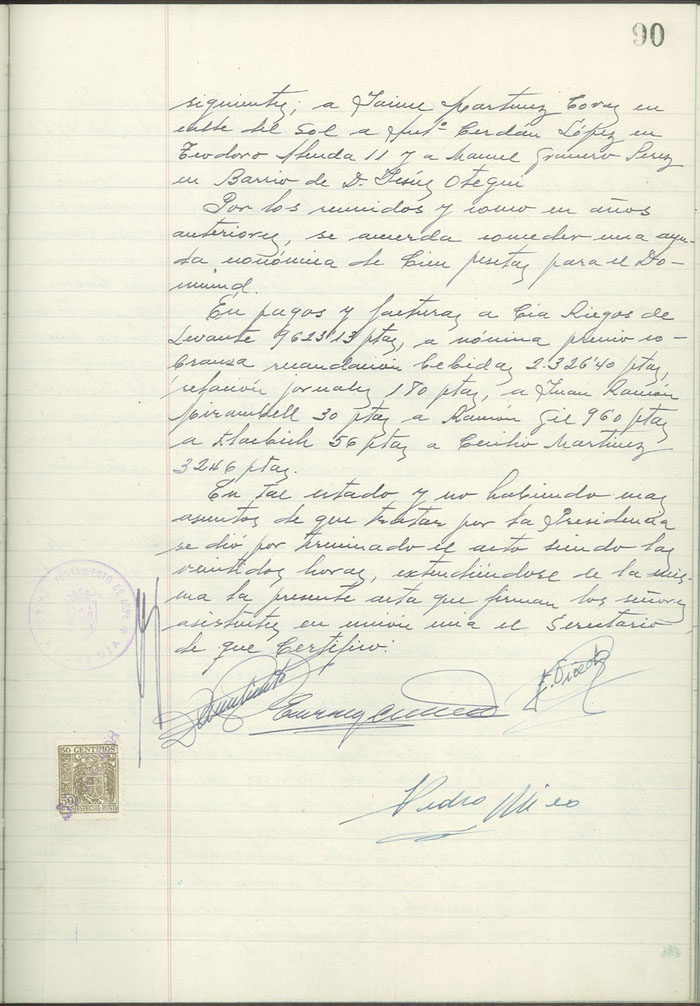 90
siguientes; a Jaime Martinez Coves en
calle del Sol a Antº Cerdán López en
Teodoro Alenda 11 y a Manuel Granero Perez
en Barrio de D. Jesús Otegui
Por los reunidos y como en años
anteriores, se acuerda conceder una ayu-
da económica de Cien pesetas para el Do-
mund.
En pagos y facturas a Cía Riegos de
Levante 9623'13 ptas, a nómina premio co-
branza recaudación bebidas 2.326'40 ptas,
relación jornales 180 ptas, a Juan Ramón
Mirambell 30 ptas a Ramón Gil 960 ptas
a 56 ptas a Cecilio Martinez
3246 ptas.
En tal estado y no habiendo mas
asuntos de que tratar por la Presidencia
se dió por terminado el acto siendo las
veintidos horas, extendiéndose de la mis-
ma la presente acta que firman los señores
asistentes en union mia el Secretario
de que Certifico:
AYUNTAMIENTO DE ASPE
Pedro Mico
50 CENTIMOS
50
ESPECIAL MOVIL